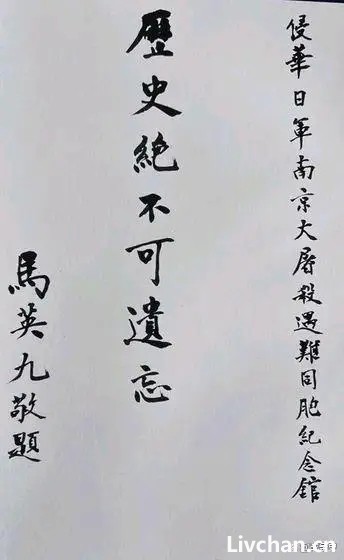 侵華日軍南京大屠殺遇難同胞紀念館
歷史絕不可遺忘
馬英九敬題
Livchan.cn